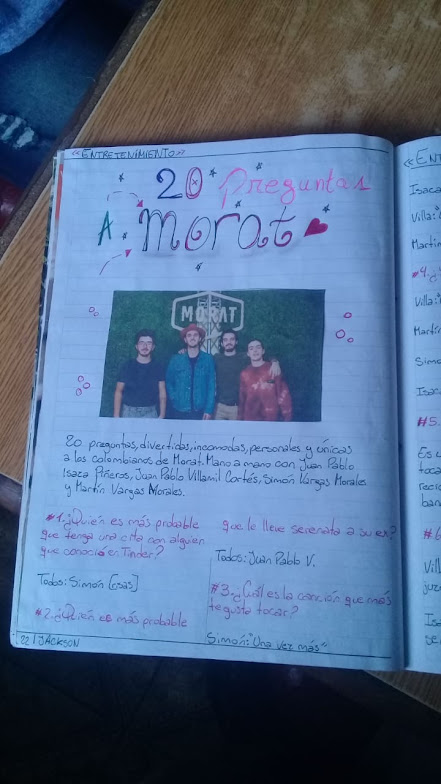 «ENTRETENIMIENTO»
20 Preguntas
A morat
MORAT
20 preguntas, divertidas, incomodas, personales y únicas
a los colombianos de Morat. Mano a mano con Juan Pablo
Isaza Piñeros, Juan Pablo Villamil Cortés, Simón Vargas Morales
y Martín Vargas Morales.
#1.¿Quién es más probable
que tenga una cita con alguien
que conoció en Tinder?
Todos: Simón [risas]
#2.¿Quién es más probable
que le lleve serenata a su ex?
Todos: Juan Pablo V.
#3.¿Cuál es la canción que más
te gusta tocar?
Simón: "Una vez más"
22 | JACKSON
«ENT
Isaca
Villa: "
Martin
#4.¿
Villa:
Martín
Simo
Isac
#5.
Es u
toca
recie
ban
#6
Vill
Isa
se